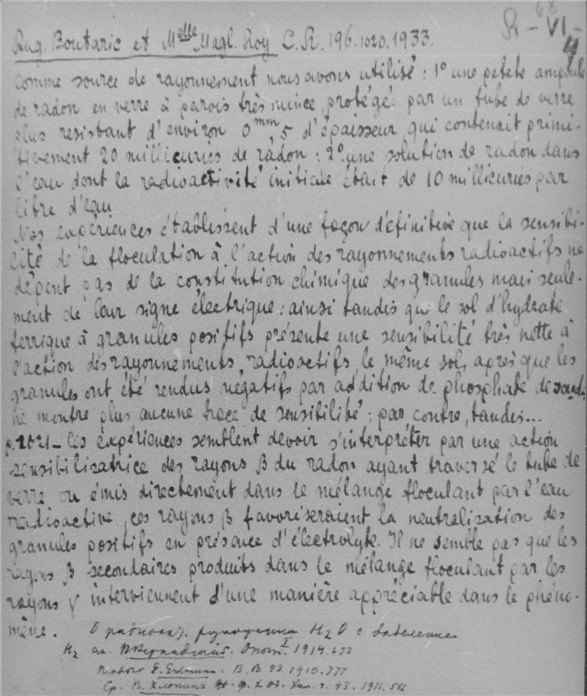 68
R - VI -
4
Aug. Boutaric et Melle Magl. Roy C.R. 196. 1020. 1933.
Comme source de rayonnement nous avons utilisé : 1° une petite ampoule
de radon en verre à parois très mince protégé par un tube de verre
plus resistant d'environ 0mm,5 d'épaisseur qui contenait primi-
tivement 20 millicuries de radon : 2° une solution de radon dans
l'eau dont la radioactivité initiale était de 10 millicuries par
litre d'eau
Nos expériences établissent d'une façon définitive que la sensibi-
lité de la floculation à l'action des rayonnements radioactifs ne
dépent pas de la constitution chimique des granules mais seule-
ment de leur signe électrique : ainsi tandis que le sol d'hydrate
ferrique à granules positifs présente une sensibilité très nette à
l'action des rayonnements radioactifs le même sol, après que les
granules ont été rendus négatifs par addition de phosphate de soude
ne montre plus aucune trace de sensibilité ; par contre, tandis...
p. 1021 - Ces expériences semblent devoir s'interpréter par une action
sensibilisatrice des rayons β du radon ayant traversé le tube de
verre ou émis directement dans le mélange floculant par l'eau
radioactive, ces rayons β favoriseraient la neutralization des
granules positifs en présence d'électrolyte. Il ne semble pas que les
rayons β secondaires produits dans le mélange floculant par les
rayons γ interviennent d'une manière appréciable dans le phéno-
mène.
О H2O с
H2 1914. 
B.B. 1910. 777
Ср. В. Хлопин